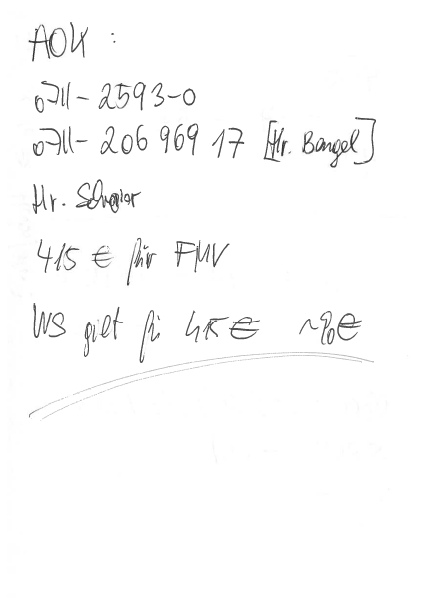 AOK :
0711-2593-0
0711-206 969 17 [Hr. Bangel]
Hr.
415 € für FMV
WS gilt für 415 € ~90€